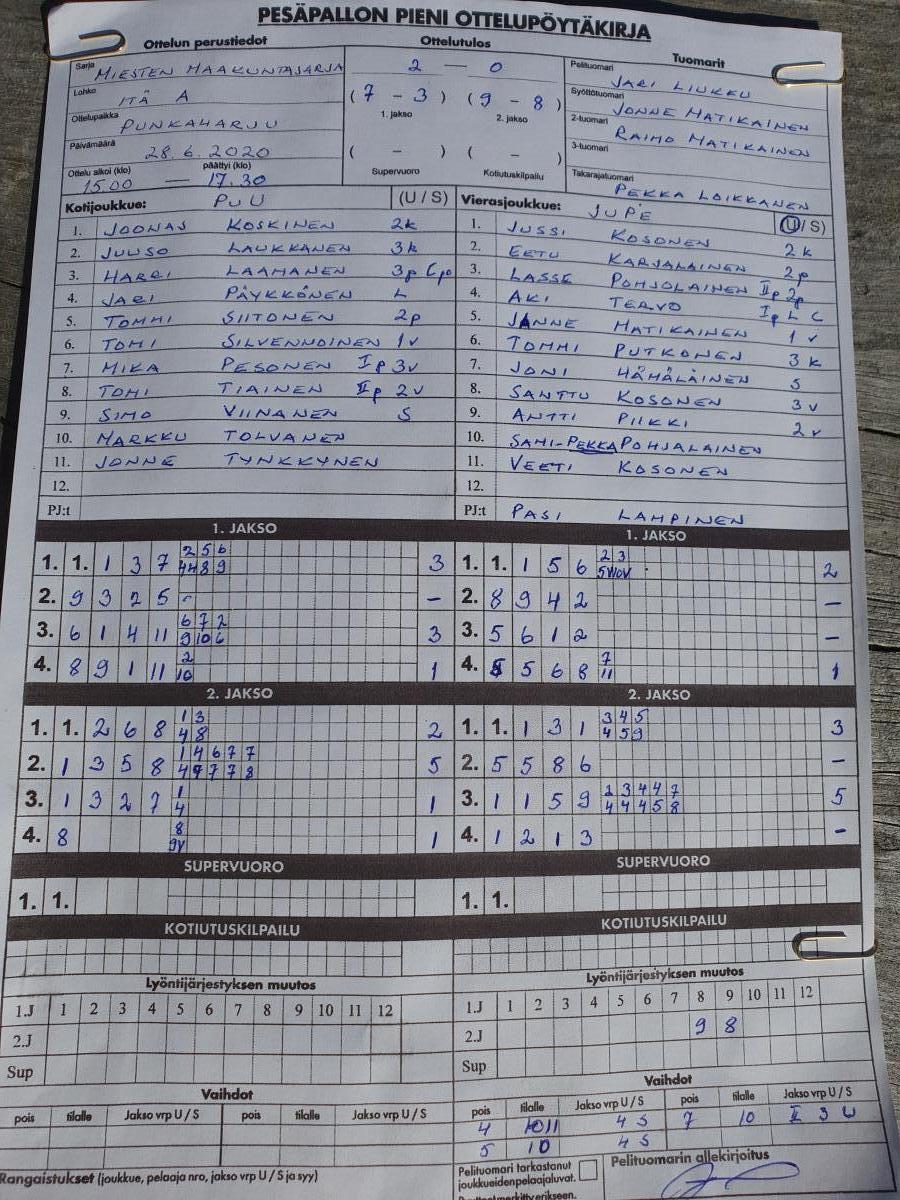 PESÄPALLON PIENI OTTELUPÖYTÄKIRJA
Ottelun perustiedot
Sarja MIESTEN MAAKUNTASARJA
Lohko ITÄ A
Ottelupaikka PUNKAHARJU
Päivämäärä 28.6.2020
Ottelu alkoi (klo) päättyi (klo)
15.00 — 17.30
Ottelutulos
2 — 0
( 7 - 3 ) ( 9 - 8 )
1. jakso 2. jakso
( - ) ( - )
Supervuoro Kotiutuskilpailu
Tuomarit
Pelituomari JARI LIUKKU
Syöttötuomari JONNE MATIKAINEN
2-tuomari RAIMO MATIKAINEN
3-tuomari
Takarajatuomari PEKKA LOIKKANEN
Kotijoukkue: PuU (U / S)
1. JOONAS KOSKINEN 2k
2. JUUSO LAUKKANEN 3k
3. HARRI LAAMANEN 3p Cpo
4. JARI PÄYKKÖNEN L
5. TOMMI SIITONEN 2p
6. TOMI SILVENNOINEN 1v
7. MIKA PESONEN Ip 3v
8. TOMI TIAINEN IIp 2v
9. SIMO VIINANEN S
10. MARKKU TOLVANEN
11. JONNE TYNKKYNEN
12.
PJ:t
Vierasjoukkue: JUPE (U / S)
1. JUSSI KOSONEN 2k
2. EETU KARJALAINEN 2p
3. LASSE POHJOLAINEN IIp 3p
4. AKI TERVO Ip L C
5. JANNE MATIKAINEN 1v
6. TOMMI PUTKONEN 3k
7. JONI HÄMÄLÄINEN S
8. SANTTU KOSONEN 3v
9. ANTTI PIIKKI 2v
10. SAMI-PEKKA POHJALAINEN
11. VEETI KOSONEN
12.
PJ:t PASI LAMPINEN
1. JAKSO
1. 1. 1 3 7 2 5 6 3
4 4 8 9
2. 9 3 2 5 - -
3. 6 1 4 11 6 7 2 3
9 10 6
4. 8 9 1 11 2 1
10
1. JAKSO
1. 1. 1 5 6 2 3 2
2. 8 9 4 2 -
3. 5 6 1 2 -
4. 5 5 6 8 7 1
11
2. JAKSO
1. 1. 2 6 8 1 3 2
4 8
2. 1 3 5 8 1 4 6 7 7 5
4 7 7 8
3. 1 3 2 7 1 1
4
4. 8 8 1
9V
2. JAKSO
1. 1. 1 3 1 3 4 5 3
4 5 9
2. 5 5 8 6 -
3. 1 1 5 9 2 3 4 4 7 5
4 4 4 5 8
4. 1 2 1 3 -
SUPERVUORO
1. 1.
SUPERVUORO
1. 1.
KOTIUTUSKILPAILU
KOTIUTUSKILPAILU
Lyöntijärjestyksen muutos
1.J 1 2 3 4 5 6 7 8 9 10 11 12
2.J
Sup
Lyöntijärjestyksen muutos
1.J 1 2 3 4 5 6 7 8 9 10 11 12
2.J 9 8
Sup
Vaihdot
pois tilalle Jakso vrp U / S pois tilalle Jakso vrp U / S
Vaihdot
pois tilalle Jakso vrp U / S pois tilalle Jakso vrp U / S
4 11 4 S 7 10 II 3 U
5 10 4 S
Rangaistukset (joukkue, pelaaja nro, jakso vrp U / S ja syy)
Pelituomari tarkastanut
joukkueidenpelaajaluvat.
Pelituomarin allekirjoitus